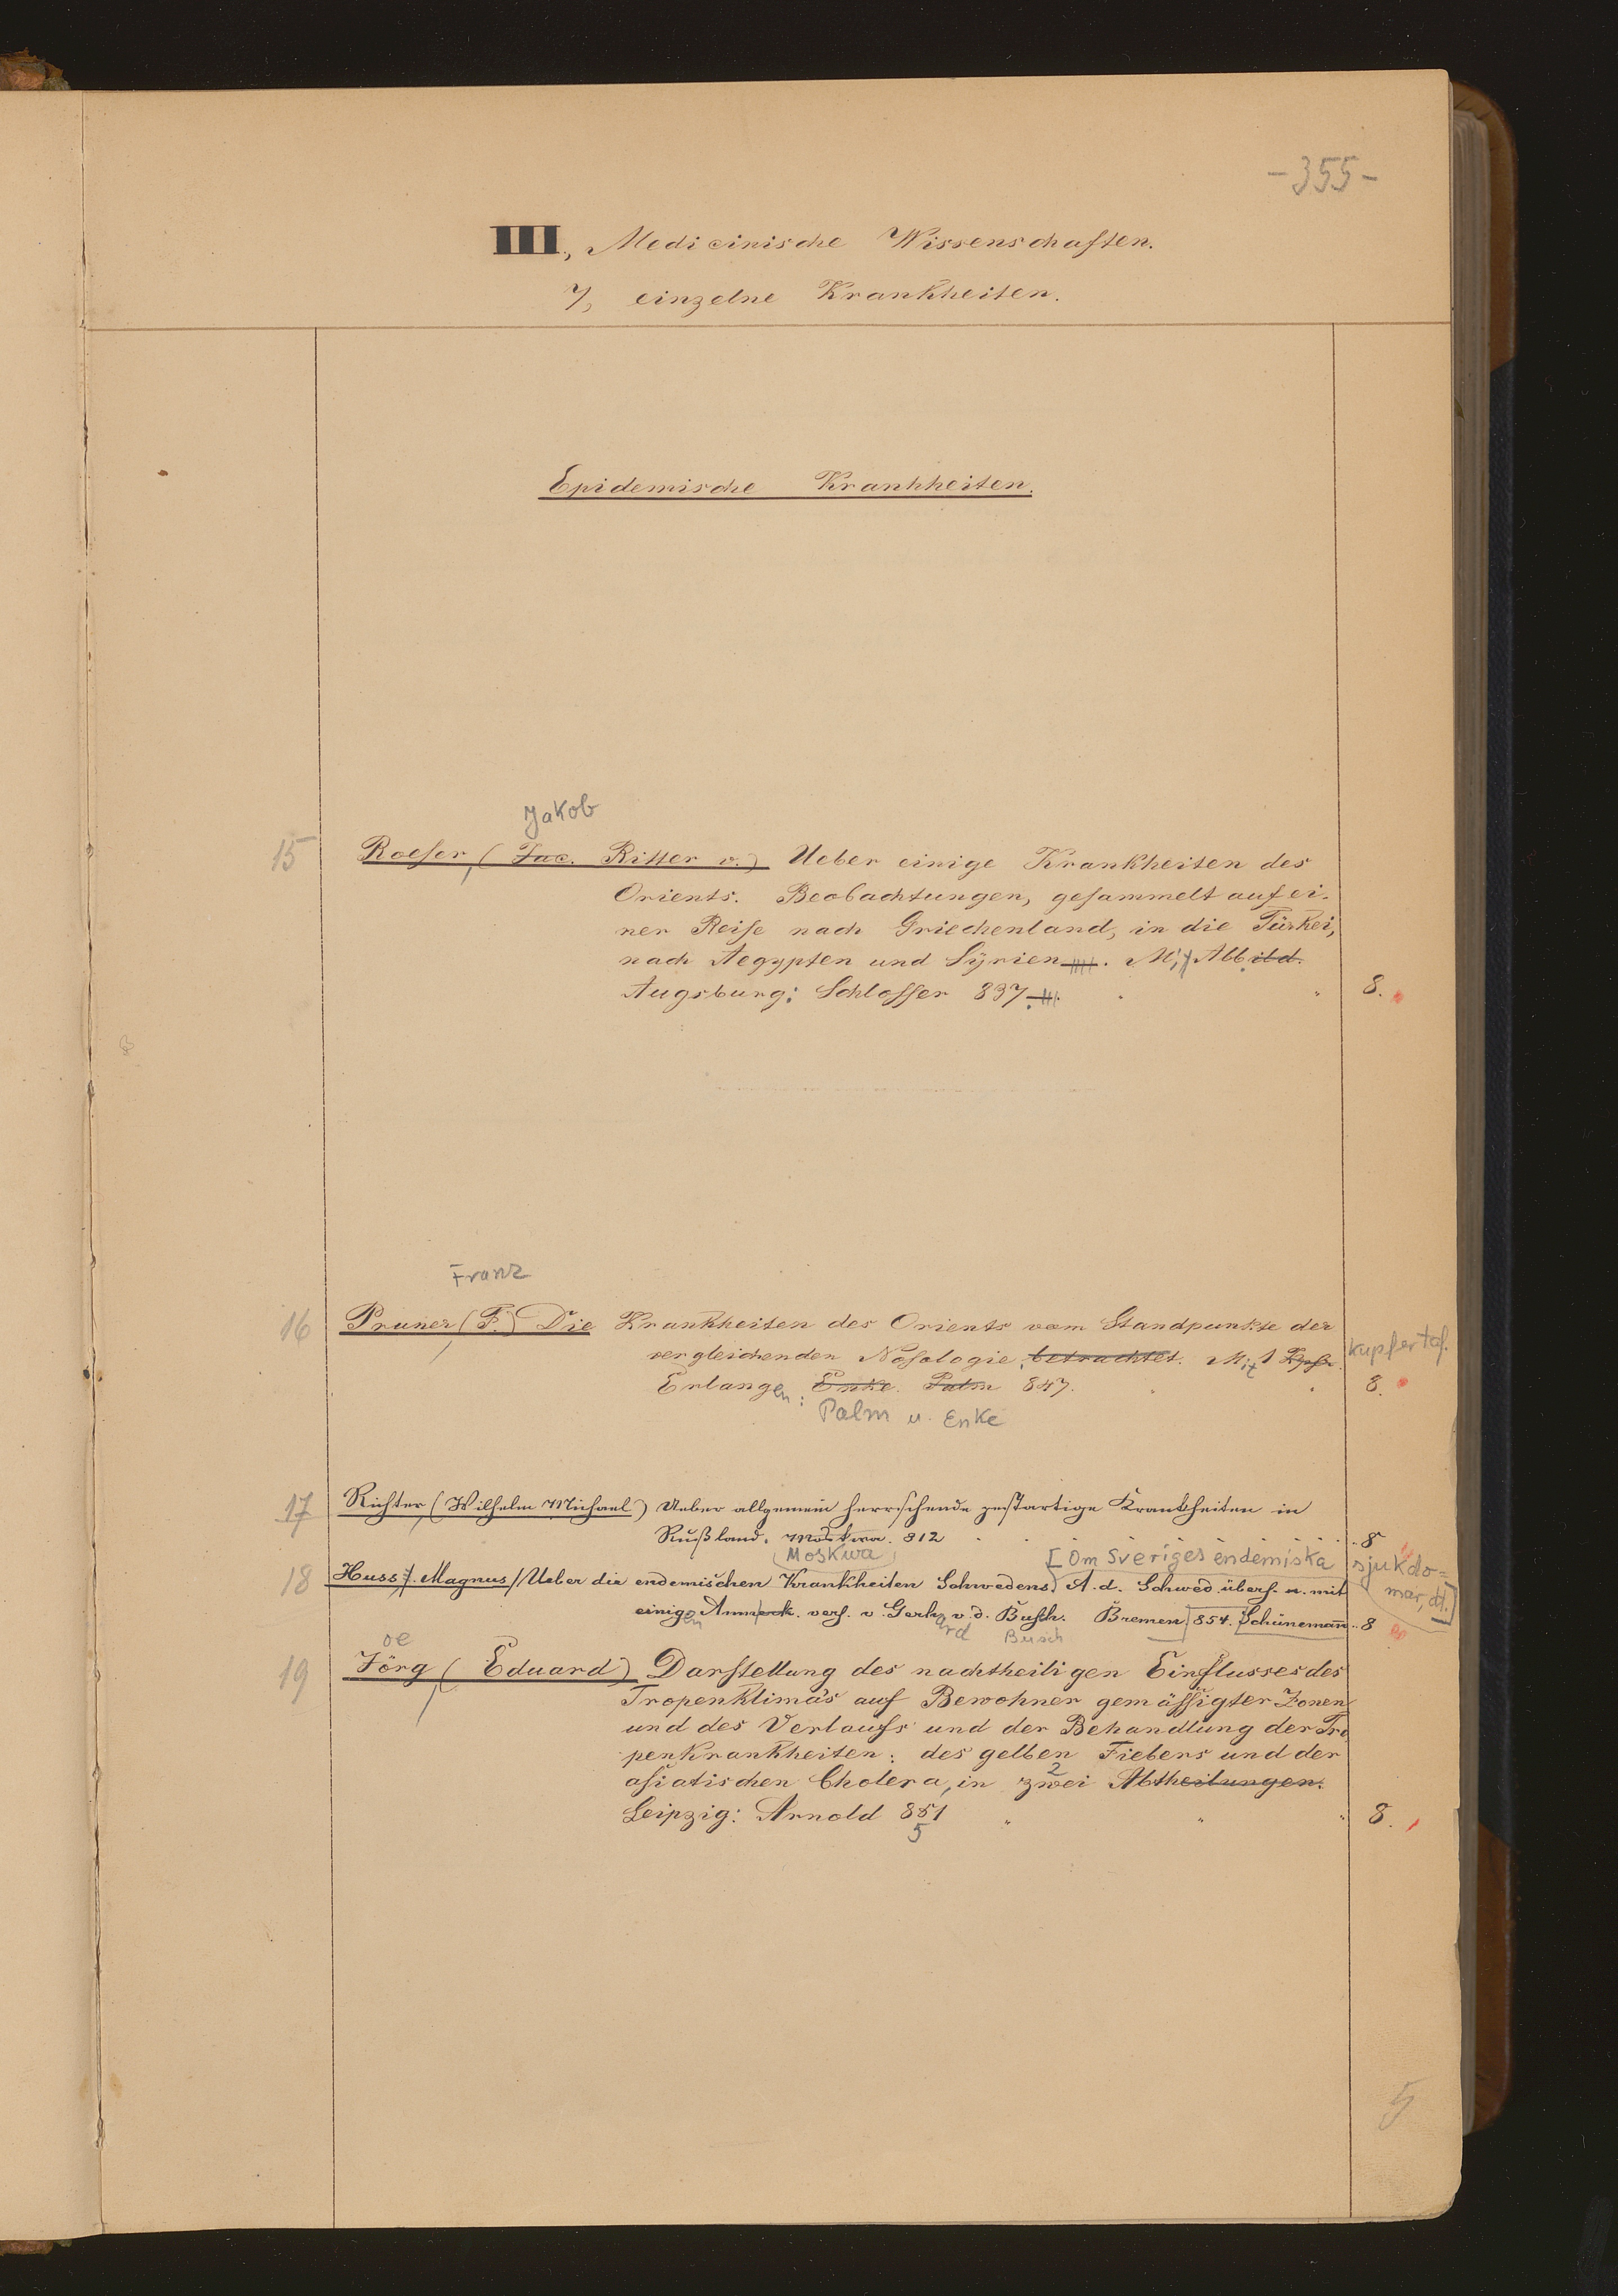 -355-
III., Medicinische Wissenschaften.
7, einzelne Krankheiten.
Epidemische Krankheiten.
Jakob
15 Roeser, (Jac. Ritter v.) Ueber einige Krankheiten des
Orients. Beobachtungen, gesammelt auf ei-
ner Reise nach Griechenland, in die Türkei,
nach Aegypten und Syrien. Mit Abbild.
Augsburg: Schlosser 837. " 8.
Franz
16 Pruner, (F.) Die Krankheiten des Orients vom Standpunkte der
vergleichenden Nosologie betrachtet. Mit 1 Kpfr. Kupfertaf.
Erlangen: Enke. Palm 847. " 8.
Palm u. Enke
17 Richter, (Wilhelm Michael) Ueber allgemein herrschende pestartige Krankheiten in
Rußland. Moskwa. 812 . . . 8
Moskwa [Om Sveriges endemiska sjukdo=
mar, dt.]
18 Huss, Magnus/Ueber die endemischen Krankheiten Schwedens. A. d. Schwed. übers. u. mit
einigen Anmerk. vers. v Gerhard v. d. Busch. Bremen 854. Schünemañ.. 8
Busch
oe
19 Jörg, (Eduard) Darstellung des nachtheiligen Einflusses des
Tropenklima's auf Bewohner gemässigter Zonen
und des Verlaufs und der Behandlung der Tro
penkrankheiten: des gelben Fiebers und der
asiatischen Cholera, in zwei Abtheilungen.
2
Leipzig: Arnold 851 " " " 8.
5
5